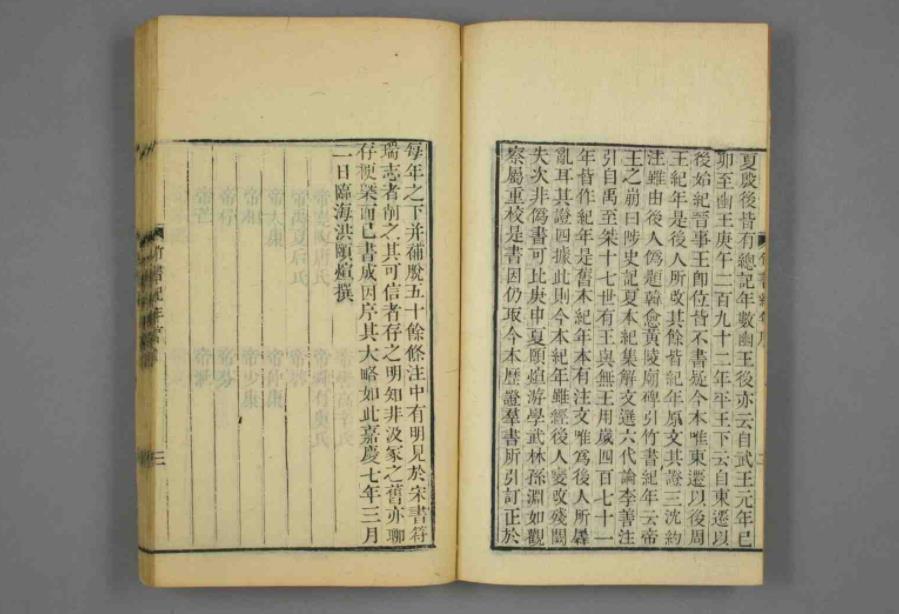 夏殷後皆有總記年數幽王後亦云自武王元年己
卯至幽王庚午二百九十二年平王下云自東遷以
後始紀晉事王卽位皆不書疑今本唯東遷以後周
王紀年是後人所改其餘皆紀年原文其證三沈約
注雖由後人僞題韓愈黃陵廟碑引竹書紀年云帝
王之崩曰陟史記夏本紀集解文選六代論李善注
引自禹至桀十七世有王與無王用歲四百七十一
年皆作紀年是舊本紀年本有注文唯爲後人所羼
亂耳其證四據此則今本紀年雖經後人變改殘闕
失次非僞書可比庚申夏頤煊游學武林孫淵如觀
察屬重校是書因仍取今本歷證羣書所引訂正於
每年之下并補脫五十餘條注中有明見於宋書符
瑞志者削之其可信者存之明知非汲冢之舊亦聊
存梗槩而已書成因序其大略如此嘉慶七年三月
二日臨海洪頤煊撰
竹書紀年
三